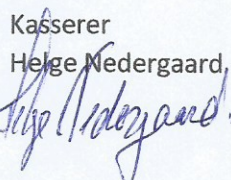 Kasserer
Helge Nedergaard
Helge Nedergaard